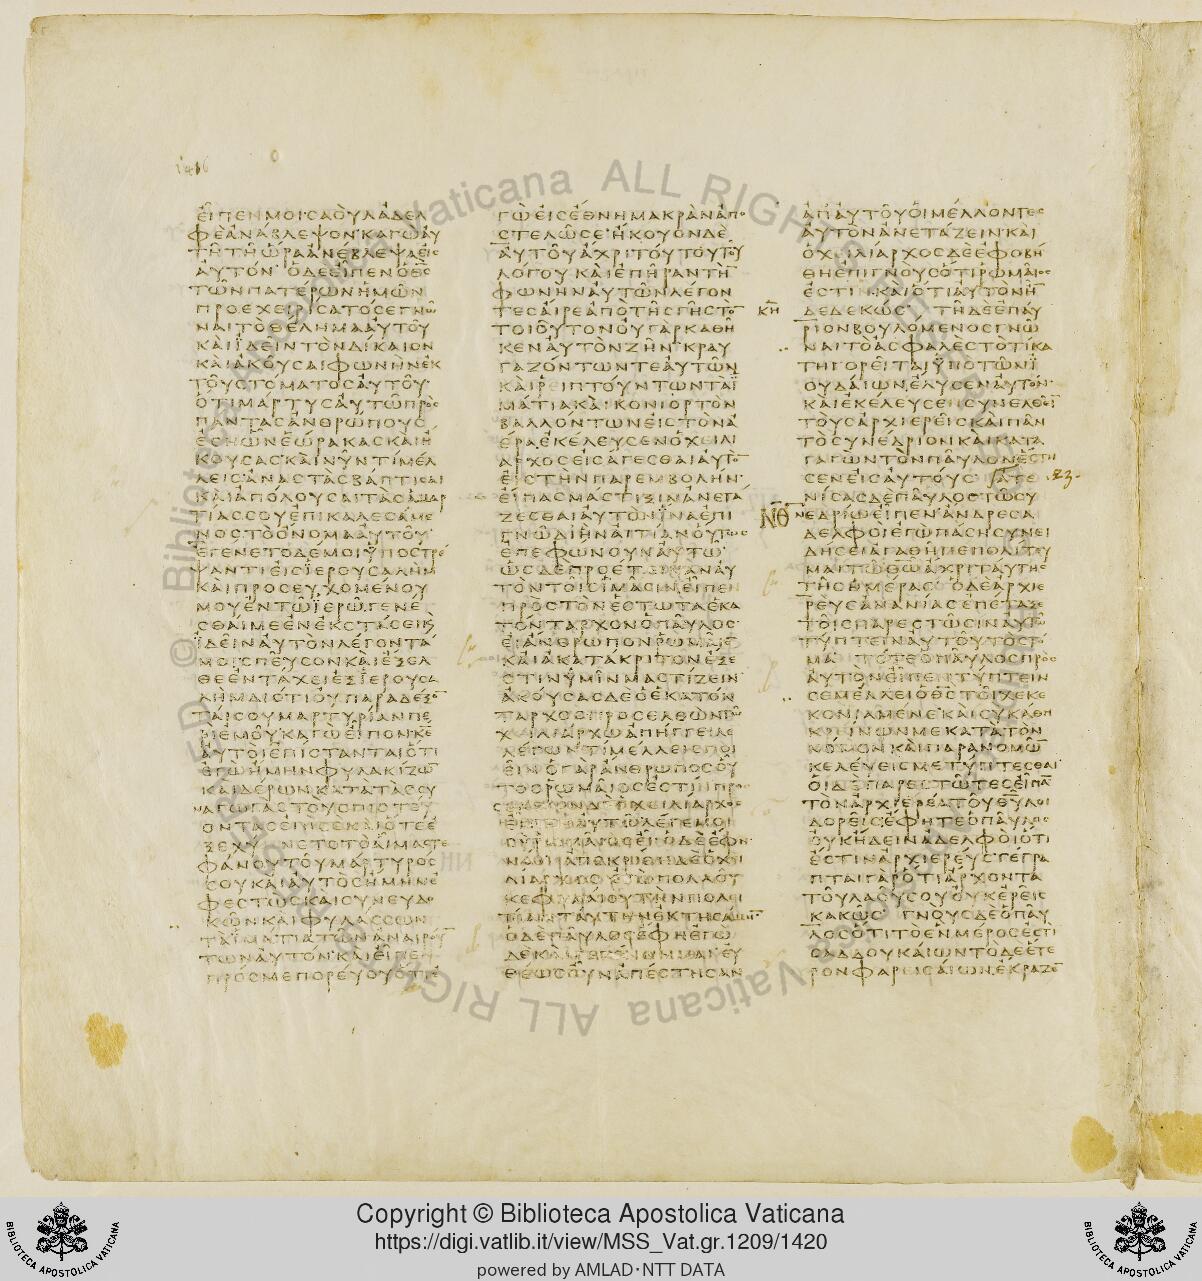 1416
ΕΙΠΕΝΜΟΙΣΑΟΥΛΑΔΕΛ
ΦΕΑΝΑΒΛΕΨΟΝΚΑΓΩΑΥ
ΤΗΤΗΩΡΑΑΝΕΒΛΕΨΑΕΙΣ
ΑΥΤΟΝΟΔΕΕΙΠΕΝΟΘΣ
ΤΩΝΠΑΤΕΡΩΝΗΜΩΝ
ΠΡΟΕΧΕΙΡΙΣΑΤΟΣΕΓΝΩ
ΝΑΙΤΟΘΕΛΗΜΑΑΥΤΟΥ
ΚΑΙΙΔΕΙΝΤΟΝΔΙΚΑΙΟΝ
ΚΑΙΑΚΟΥΣΑΙΦΩΝΗΝΕΚ
ΤΟΥΣΤΟΜΑΤΟΣΑΥΤΟΥ
ΟΤΙΜΑΡΤΥΣΑΥΤΩΠΡΟΣ
ΠΑΝΤΑΣΑΝΘΡΩΠΟΥΣ
ΕΣΗΩΝΕΩΡΑΚΑΣΚΑΙΗ
ΚΟΥΣΑΣΚΑΙΝΥΝΤΙΜΕΛ
ΛΕΙΣΑΝΑΣΤΑΣΒΑΠΤΙΣΑΙ
ΚΑΙΑΠΟΛΟΥΣΑΙΤΑΣΑΜΑΡ
ΤΙΑΣΣΟΥΕΠΙΚΑΛΕΣΑΜΕ
ΝΟΣΤΟΟΝΟΜΑΑΥΤΟΥ
ΕΓΕΝΕΤΟΔΕΜΟΙΥΠΟΣΤΡΕ
ΨΑΝΤΙΕΙΣΙΕΡΟΥΣΑΛΗΜ
ΚΑΙΠΡΟΣΕΥΧΟΜΕΝΟΥ
ΜΟΥΕΝΤΩΙΕΡΩΓΕΝΕ
ΣΘΑΙΜΕΕΝΕΚΣΤΑΣΕΙΚΑΙ
ΙΔΕΙΝΑΥΤΟΝΛΕΓΟΝΤΑ
ΜΟΙΣΠΕΥΣΟΝΚΑΙΕΞΕΛ
ΘΕΕΝΤΑΧΕΙΕΞΙΕΡΟΥΣΑ
ΛΗΜΔΙΟΤΙΟΥΠΑΡΑΔΕΞΟ
ΤΑΙΣΟΥΜΑΡΤΥΡΙΑΝΠΕ
ΡΙΕΜΟΥΚΑΓΩΕΙΠΟΝΚΕ
ΑΥΤΟΙΕΠΙΣΤΑΝΤΑΙΟΤΙ
ΕΓΩΗΜΗΝΦΥΛΑΚΙΖΩ
ΚΑΙΔΕΡΩΝΚΑΤΑΤΑΣΣΥ
ΝΑΓΩΓΑΣΤΟΥΣΠΙΣΤΕΥ
ΟΝΤΑΣΕΠΙΣΕΚΑΙΟΤΕΕ
ΞΕΧΥΝΝΕΤΟΤΟΑΙΜΑΣΤΕ
ΦΑΝΟΥΤΟΥΜΑΡΤΥΡΟΣ
ΣΟΥΚΑΙΑΥΤΟΣΗΜΗΝΕ
ΦΕΣΤΩΣΚΑΙΣΥΝΕΥΔΟ
ΚΩΝΚΑΙΦΥΛΑΣΣΩΝ
ΤΑΙΜΑΤΙΑΤΩΝΑΝΑΙΡΟΥ
ΤΩΝΑΥΤΟΝΚΑΙΕΙΠΕΝ
ΠΡΟΣΜΕΠΟΡΕΥΟΥΟΤΙΕ
ΓΩΕΙΣΕΘΝΗΜΑΚΡΑΝΑΠΟ
ΣΤΕΛΩΣΕΗΚΟΥΟΝΔΕ
ΑΥΤΟΥΑΧΡΙΤΟΥΤΟΥΤΟΥ
ΛΟΓΟΥΚΑΙΕΠΗΡΑΝΤΗ
ΦΩΝΗΝΑΥΤΩΝΛΕΓΟΝ
ΤΕΣΑΙΡΕΑΠΟΤΗΣΓΗΣΤΟ
ΤΟΙΟΥΤΟΝΟΥΓΑΡΚΑΘΗ
ΚΕΝΑΥΤΟΝΖΗΝΚΡΑΥ
ΓΑΖΟΝΤΩΝΤΕΑΥΤΩΝ
ΚΑΙΡΕΙΠΤΟΥΝΤΩΝΤΑΙ
ΜΑΤΙΑΚΑΙΚΟΝΙΟΡΤΟΝ
ΒΑΛΛΟΝΤΩΝΕΙΣΤΟΝΑ
ΕΡΑΕΚΕΛΕΥΣΕΝΟΧΕΙΛΙ
ΑΡΧΟΣΕΙΣΑΓΕΣΘΑΙΑΥΤΟ
ΕΙΣΤΗΝΠΑΡΕΜΒΟΛΗΝ
ΕΙΠΑΣΜΑΣΤΙΞΙΝΑΝΕΤΑ
ΖΕΣΘΑΙΑΥΤΟΝΙΝΑΕΠΙ
ΓΝΩΔΙΗΝΑΙΤΙΑΝΟΥΤΩΣ
ΕΠΕΦΩΝΟΥΝΑΥΤΩ
ΩΣΔΕΠΡΟΕΤΕΙΝΑΝΑΥ
ΤΟΝΤΟΙΣΙΜΑΣΙΝΕΙΠΕΝ
ΠΡΟΣΤΟΝΕΣΤΩΤΑΕΚΑ
ΤΟΝΤΑΡΧΟΝΟΠΑΥΛΟΣ
ΕΙΑΝΘΡΩΠΟΝΡΩΜΑΙΟ
ΚΑΙΑΚΑΤΑΚΡΙΤΟΝΕΞΕ
ΣΤΙΝΥΜΙΝΜΑΣΤΙΖΕΙΝ
ΑΚΟΥΣΑΣΔΕΟΕΚΑΤΟΝ
ΤΑΡΧΟΣΠΡΟΣΕΛΘΩΝΤΩ
ΧΕΙΛΙΑΡΧΩΑΠΗΓΓΕΙΛΕ
ΛΕΓΩΝΤΙΜΕΛΛΕΙΣΠΟΙ
ΕΙΝΟΓΑΡΑΝΘΡΩΠΟΣΟΥ
ΤΟΣΡΩΜΑΙΟΣΕΣΤΙΝΠΡΟ
ΣΕΛΘΩΝΔΕΟΧΕΙΛΙΑΡΧΟΣ
ΕΙΠΕΝΑΥΤΩΛΕΓΕΜΟΙ
ΣΥΡΩΜΑΙΟΣΕΙΟΔΕΕΦΗ
ΝΑΙΑΠΕΚΡΙΘΗΔΕΟΧΙ
ΛΙΑΡΧΟΣΕΓΩΠΟΛΛΟΥ
ΚΕΦΑΛΑΙΟΥΤΗΝΠΟΛΕΙ
ΤΙΑΝΤΑΥΤΗΝΕΚΤΗΣΑΜΗ
ΟΔΕΠΑΥΛΟΣΕΦΗΕΓΩ
ΔΕΚΑΙΓΕΓΕΝΝΗΜΑΙΕΥ
ΘΕΩΣΟΥΝΑΠΕΣΤΗΣΑΝ
ΑΠΑΥΤΟΥΟΙΜΕΛΛΟΝΤΕΣ
ΑΥΤΟΝΑΝΕΤΑΖΕΙΝΚΑΙ
ΟΧΙΛΙΑΡΧΟΣΔΕΕΦΟΒΗ
ΘΗΕΠΙΓΝΟΥΣΟΤΙΡΩΜΑΙΟΣ
ΕΣΤΙΝΚΑΙΟΤΙΑΥΤΟΝΗ
ΚΗ ΔΕΔΕΚΩΣΤΗΔΕΕΠΑΥ
ΡΙΟΝΒΟΥΛΟΜΕΝΟΣΓΝΩ
ΝΑΙΤΟΑΣΦΑΛΕΣΤΟΤΙΚΑ
ΤΗΓΟΡΕΙΤΑΙΥΠΟΤΩΝΙ
ΟΥΔΑΙΩΝΕΛΥΣΕΝΑΥΤΟΝ
ΚΑΙΕΚΕΛΕΥΣΕΝΣΥΝΕΛΘΕΙ
ΤΟΥΣΑΡΧΙΕΡΕΙΣΚΑΙΠΑΝ
ΤΟΣΥΝΕΔΡΙΟΝΚΑΙΚΑΤΑ
ΓΑΓΩΝΤΟΝΠΑΥΛΟΝΕΣΤΗ
ΣΕΝΕΙΣΑΥΤΟΥΣΑΤΕ 23.
ΝΙΣΑΣΔΕΠΑΥΛΟΣΤΩΣΥ
ΝΘ ΝΕΔΡΙΩΕΙΠΕΝΑΝΔΡΕΣΑ
ΔΕΛΦΟΙΕΓΩΠΑΣΗΣΥΝΕΙ
ΔΗΣΕΙΑΓΑΘΗΠΕΠΟΛΙΤΕΥ
ΜΑΙΤΩΘΩΑΧΡΙΤΑΥΤΗΣ
ΤΗΣΗΜΕΡΑΣΟΔΕΑΡΧΙΕ
ΡΕΥΣΑΝΑΝΙΑΣΕΠΕΤΑΞΕ
ΤΟΙΣΠΑΡΕΣΤΩΣΙΝΑΥΤΩ
ΤΥΠΤΕΙΝΑΥΤΟΥΤΟΣΤΟ
ΜΑΤΟΤΕΟΠΑΥΛΟΣΠΡΟΣ
ΑΥΤΟΝΕΙΠΕΝΤΥΠΤΕΙΝ
ΣΕΜΕΛΛΕΙΟΘΣΤΟΙΧΕΚΕ
ΚΟΝΙΑΜΕΝΕΚΑΙΣΥΚΑΘΗ
ΚΡΕΙΝΩΝΜΕΚΑΤΑΤΟΝ
ΝΟΜΟΝΚΑΙΠΑΡΑΝΟΜΩ
ΚΕΛΕΥΕΙΣΜΕΤΥΠΤΕΣΘΑΙ
ΟΙΔΕΠΑΡΕΣΤΩΤΕΣΕΙΠΑ
ΤΟΝΑΡΧΙΕΡΕΑΤΟΥΘΥΛΟΙ
ΔΟΡΕΙΣΕΦΗΤΕΟΠΑΥΛΟΣ
ΟΥΚΗΔΕΙΝΑΔΕΛΦΟΙΟΤΙ
ΕΣΤΙΝΑΡΧΙΕΡΕΥΣΓΕΓΡΑ
ΠΤΑΙΓΑΡΟΤΙΑΡΧΟΝΤΑ
ΤΟΥΛΑΟΥΣΟΥΟΥΚΕΡΕΙΣ
ΚΑΚΩΣΓΝΟΥΣΔΕΟΠΑΥ
ΛΟΣΟΤΙΤΟΕΝΜΕΡΟΣΕΣΤΙ
ΣΑΔΔΟΥΚΑΙΩΝΤΟΔΕΕΤΕ
ΡΟΝΦΑΡΙΣΑΙΩΝΕΚΡΑΖΕ
Copyright © Biblioteca Apostolica Vaticana
https://digi.vatlib.it/view/MSS_Vat.gr.1209/1420
powered by AMLAD·NTT DATA